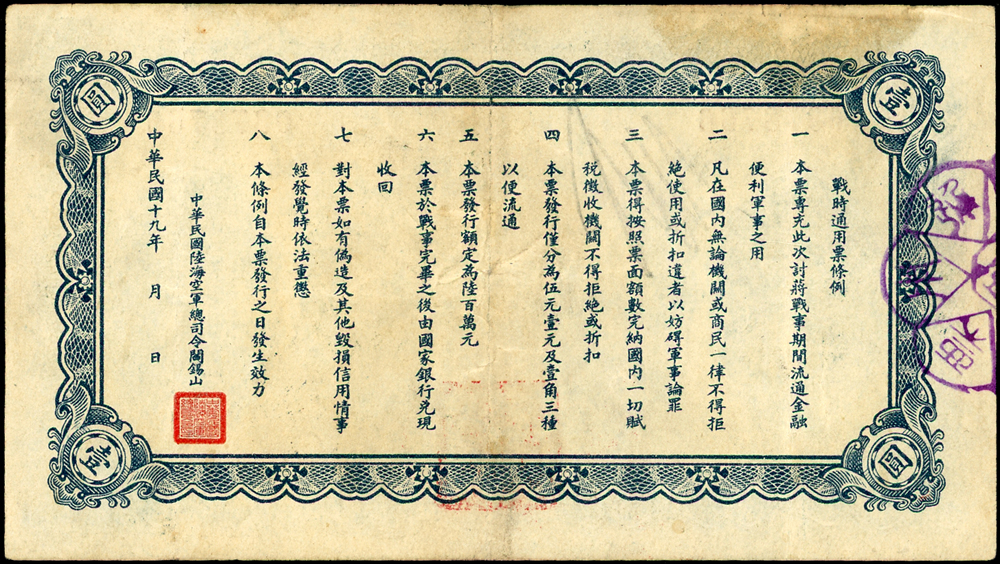 戰時通用票條例
一　本票專充此次討蔣戰事期間流通金融
便利軍事之用
二　凡在國內無論機關或商民一律不得拒
絶使用或折扣違者以妨碍軍事論罪
三　本票得按照票面額數完納國內一切賦
税徵收機關不得拒絶或折扣
四　本票發行僅分為伍元壹元及壹角三種
以便流通
五　本票發行額定為陸百萬元
六　本票於戰事完畢之後由國家銀行兌現
收回
七　對本票如有偽造及其他毀損信用情事
經發覺時依法重懲
八　本條例自本票發行之日發生效力
中華民國陸海空軍總司令閻錫山
中華民國十九年　月　日
壹
圓
壹
圓